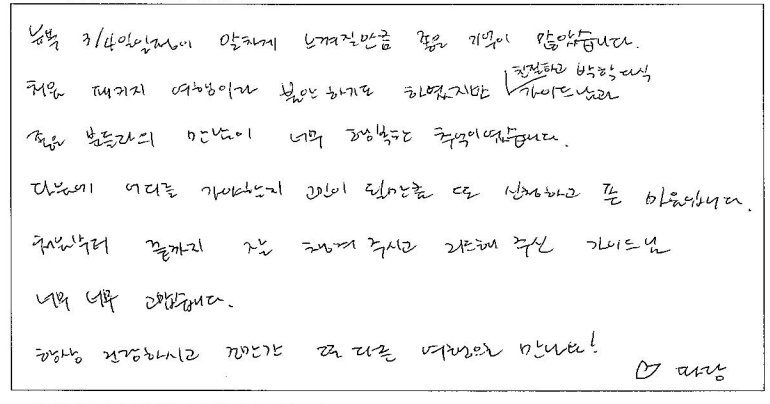 뉴욕 3/4일일정이 알차게 느껴질만큼 좋은 기억이 많았습니다.
처음 패키지 여행이라 불안하기도 하였지만 친절하고 박학다식 가이드님과
좋은 분들과의 만남이 너무 행복한 추억이였습니다.
다음에 어디를 가야할지 고민이 될만큼 또 신청하고 픈 마음입니다.
처음부터 끝까지 잘 챙겨 주시고 리드해 주신 가이드님
너무 너무 고맙습니다.
항상 건강하시고 조만간 또 다른 여행으로 만나요!
♡